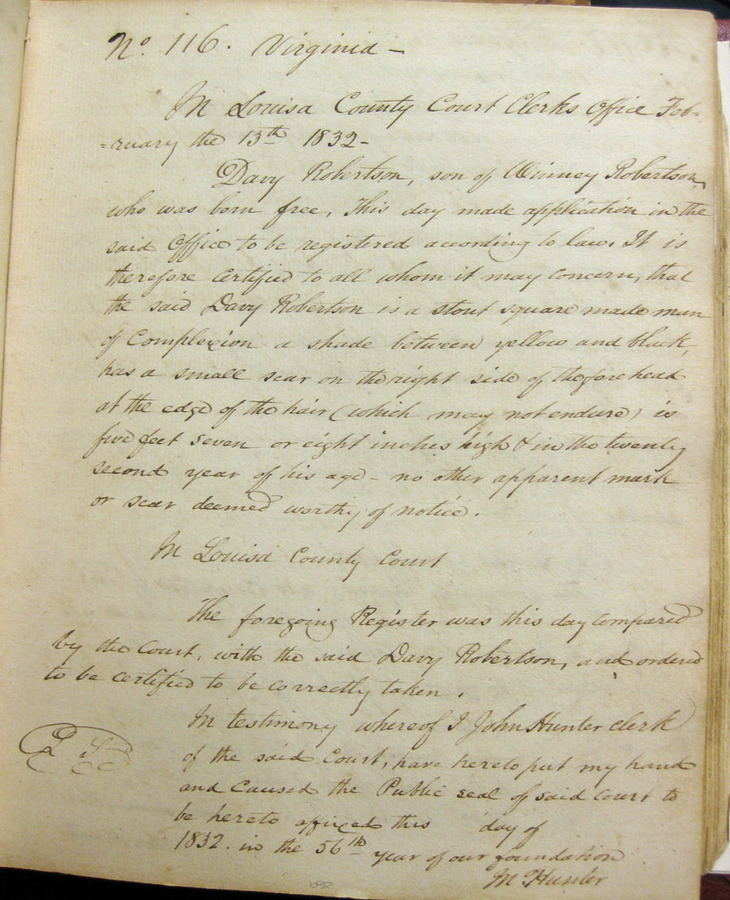 No. 116. Virginia -
In Louisa County Court Clerks Office Feb-
=ruary the 13th 1832-
Davy Robertson, son of Winney Robertson,
who was born free, This day made application in the
said Office to be registered according to law. It is
therefore certified to all whom it may concern, that
the said Davy Robertson is a stout square made man
of Complexion a shade between yellow and black,
has a small scar on the right side of the forehead
at the edge of the hair (which may not endure) is
five feet seven or eight inches high & in the twenty
second year of his age - no other apparent mark
or scar deemed worthy of notice.
In Louisa County Court
The foregoing Register was this day compared
by the Court, with the said Davy Robertson, and ordered
to be certified to be correctly taken.
In testimony whereof I John Hunter clerk
L S
of the said Court, have hereto put my hand
and caused the Public seal of said court to
be hereto affixed this day of
1832. in the 56th year of our foundation
Hunter